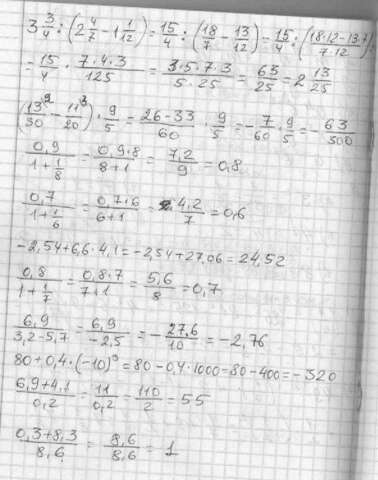 3 3/4 : (2 4/7 - 1 1/12) = 15/4 : (18/7 - 13/12) = 15/4 : (18·12-13·7 / 7·12)
= 15/4 · 7·4·3 / 125 = 3·5·7·3 / 5·25 = 63/25 = 2 13/25
(13²/30 - 11³/20) · 9/5 = 26-33 / 60 · 9/5 = - 7/60 · 9/5 = - 63/300
0,9 / 1+1/8 = 0,9·8 / 8+1 = 7,2 / 9 = 0,8
0,7 / 1+1/6 = 0,7·6 / 6+1 = 4,2 / 7 = 0,6
-2,54+6,6·4,1 = -2,54+27,06 = 24,52
0,8 / 1+1/7 = 0,8·7 / 7+1 = 5,6 / 8 = 0,7
6,9 / 3,2-5,7 = 6,9 / -2,5 = - 27,6 / 10 = -2,76
80+0,4·(-10)³ = 80-0,4·1000 = 80-400 = -320
6,9+4,1 / 0,2 = 11 / 0,2 = 110 / 2 = 55
0,3+8,3 / 8,6 = 8,6 / 8,6 = 1